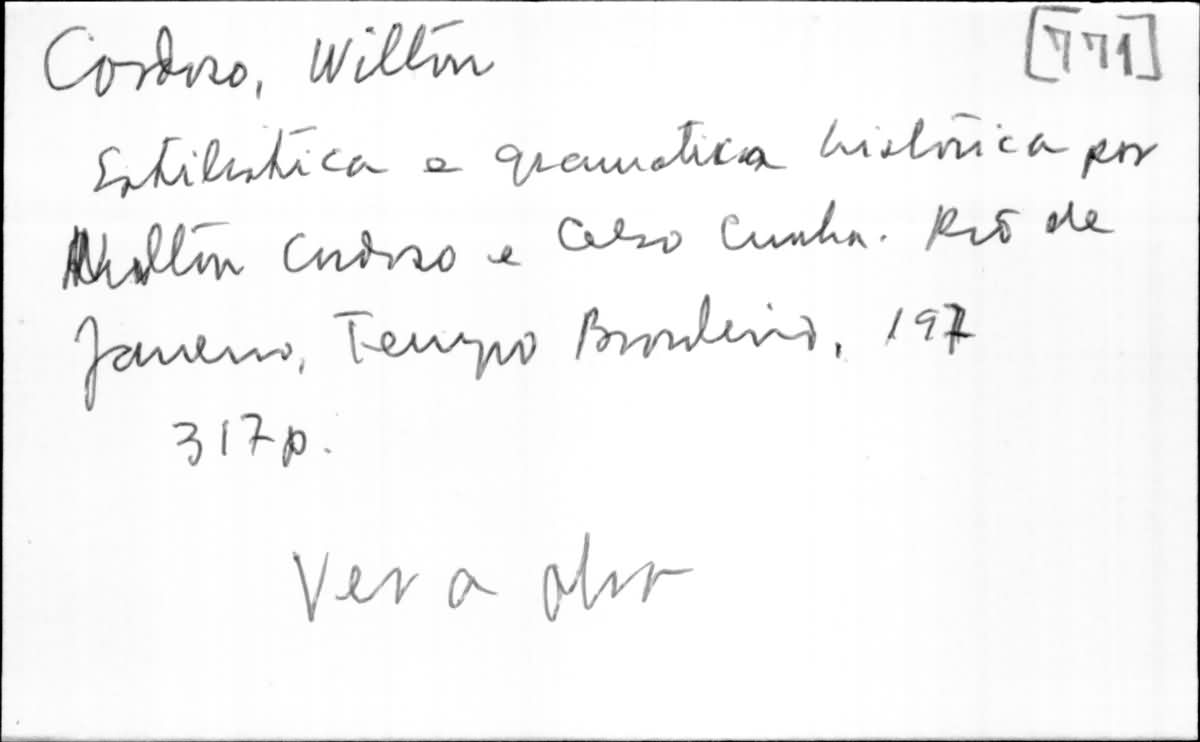 Cardoso, Wilton [771]
Estilistica e gramatica histórica por
Wilton Cardoso e Celso Cunha. Rio de
Janeiro, Tempo Brasileiro, 197
317 p.
Ver a obra